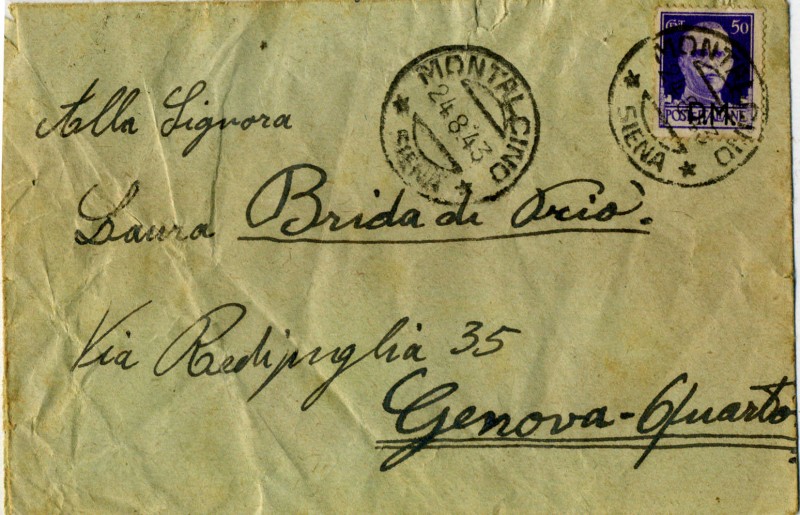 MONTALCINO
24.8.43
SIENA
Cᴹⁱ 50
P.M.
POSTE ITALIANE
MONTALCINO
SIENA
Alla Signora
Laura Brida di Priò.
Via Redipuglia 35
Genova-Quarto